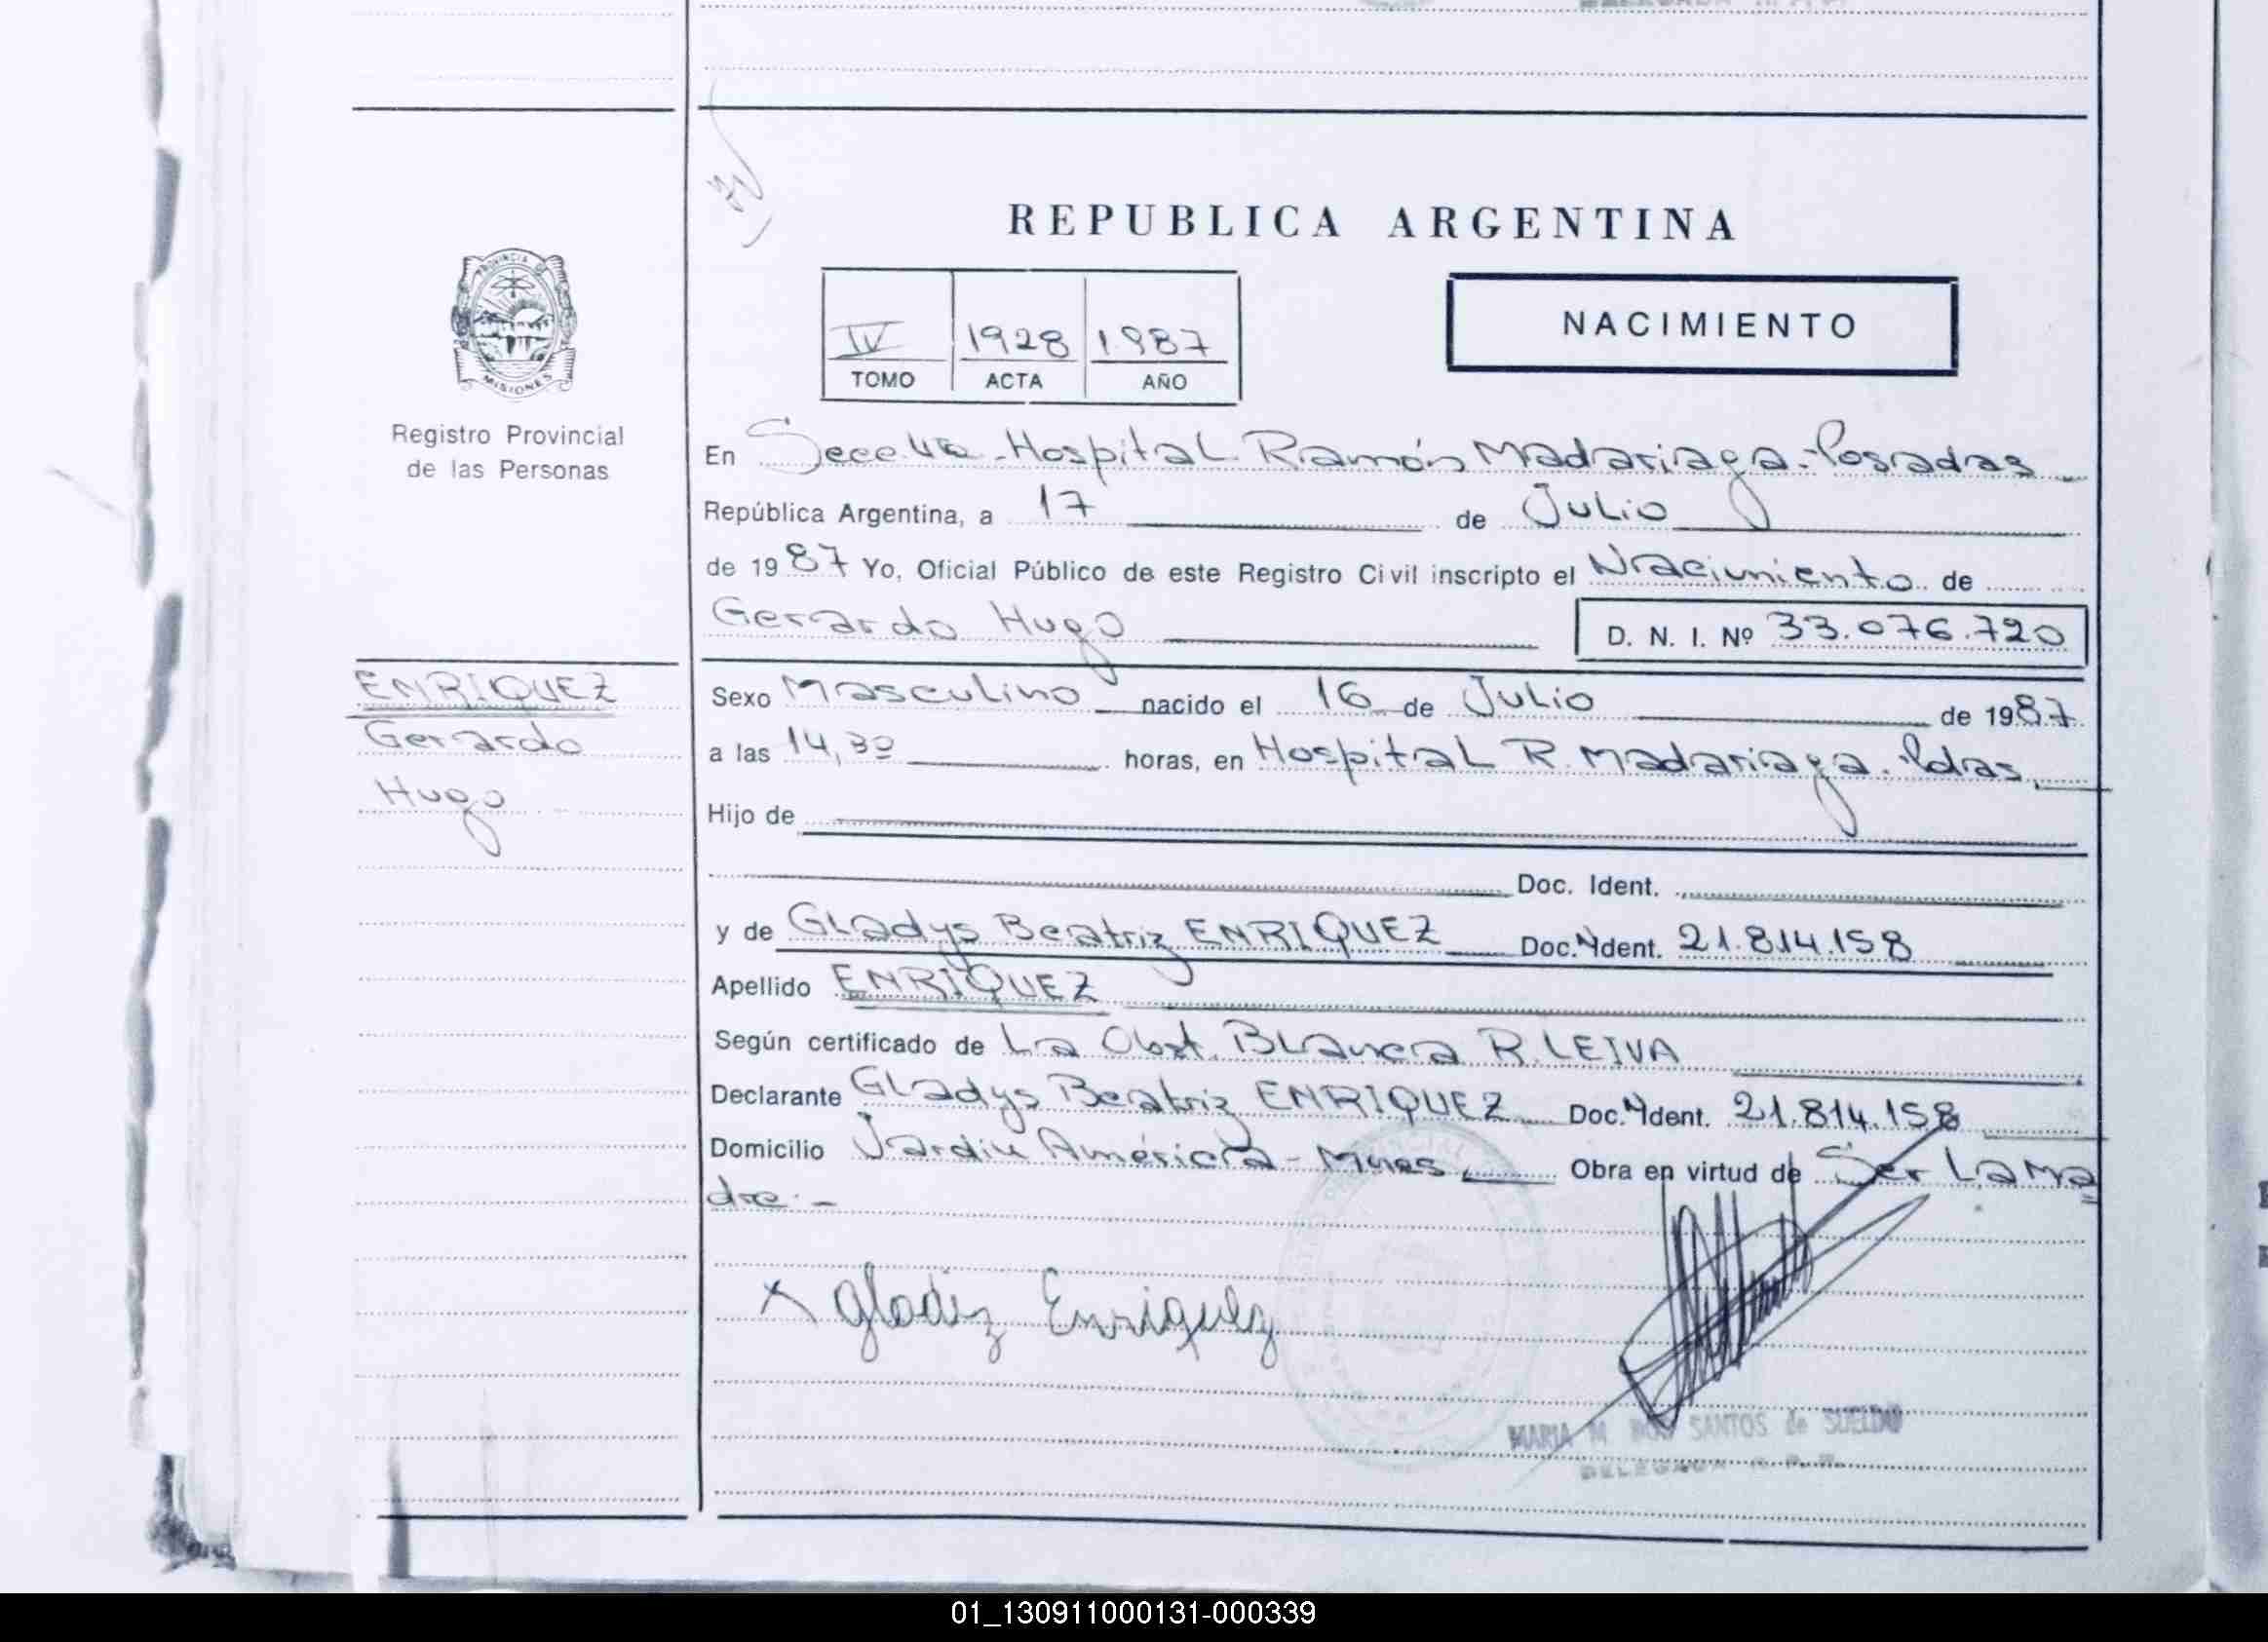 REPUBLICA ARGENTINA
PROVINCIA DE
MISIONES
Registro Provincial
de las Personas
IV 1928 1987
TOMO ACTA AÑO
NACIMIENTO
En Secc 4ta - Hospital Ramón Madariaga - Posadas
República Argentina, a 17 de Julio
de 1987 Yo, Oficial Público de este Registro Civil inscripto el Nacimiento de
Gerardo Hugo D. N. I. Nº 33.076.720
ENRIQUEZ
Gerardo
Hugo
Sexo Masculino nacido el 16 de Julio de 1987
a las 14,30 horas, en Hospital R. Madariaga. Pdas
Hijo de
Doc. Ident.
y de Gladys Beatriz ENRIQUEZ Doc. Ident. 21.814.158
Apellido ENRIQUEZ
Según certificado de La Obst. Blanca R. LEIVA
Declarante Gladys Beatriz ENRIQUEZ Doc. Ident. 21.814.158
Domicilio Jardin América - Mnes Obra en virtud de Ser La Ma
dre. -
x Gladiz Enriquez
MARIA M. DOS SANTOS de SUELDO
DELEGADA R. P. P.
01_130911000131-000339